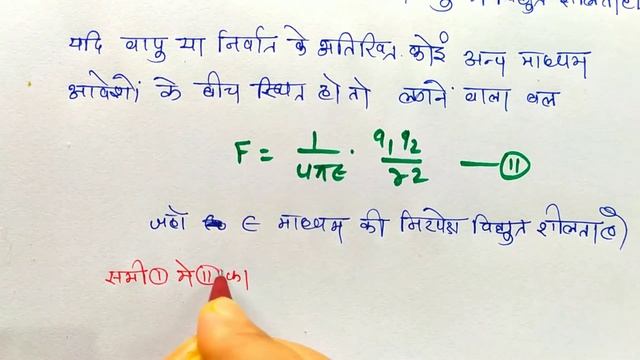 विद्युत शीलता है
यदि वायु या निर्वात के अतिरिक्त कोई अन्य माध्यम
आवेशों के बीच स्थित हो तो लगने वाला बल
F = 1/4πε · q₁q₂/r2 — (11)
जहाँ ∈ माध्यम की निरपेक्ष विद्युत शीलता है)
समी (1) मे (11) का